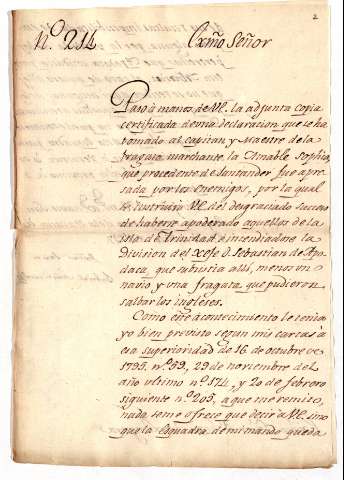 2
N.º 214
Exmo Señor
Paso à manos de VE. la adjunta copia
certificada de una declaracion que se ha
tomado al capitan y Maestre de la
fragata marchante la Amable Sophie,
que procedente de Santander fue apre-
sada por los Enemigos, por la qual
se instruirá VE. del desgraciado suceso
de haberse apoderado aquellos de la
isla de Trinidad è incendiadose la
division del Xefe dn Sebastian de Apo-
daca, que subsistia alli, menos un
navio y una fragata que pudieron
salbar los ingleses.
Como este acontecimiento le tenia
yo bien previsto segun mis cartas à
esa superioridad de 16 de octubre de
1795, nº 59, 29 de noviembre del
año ultimo nº 174, y 20 de febrero
siguiente nº 205, a que me remito,
nada se me ofrece que decir à VE. sino
que la Esquadra de mi mando queda